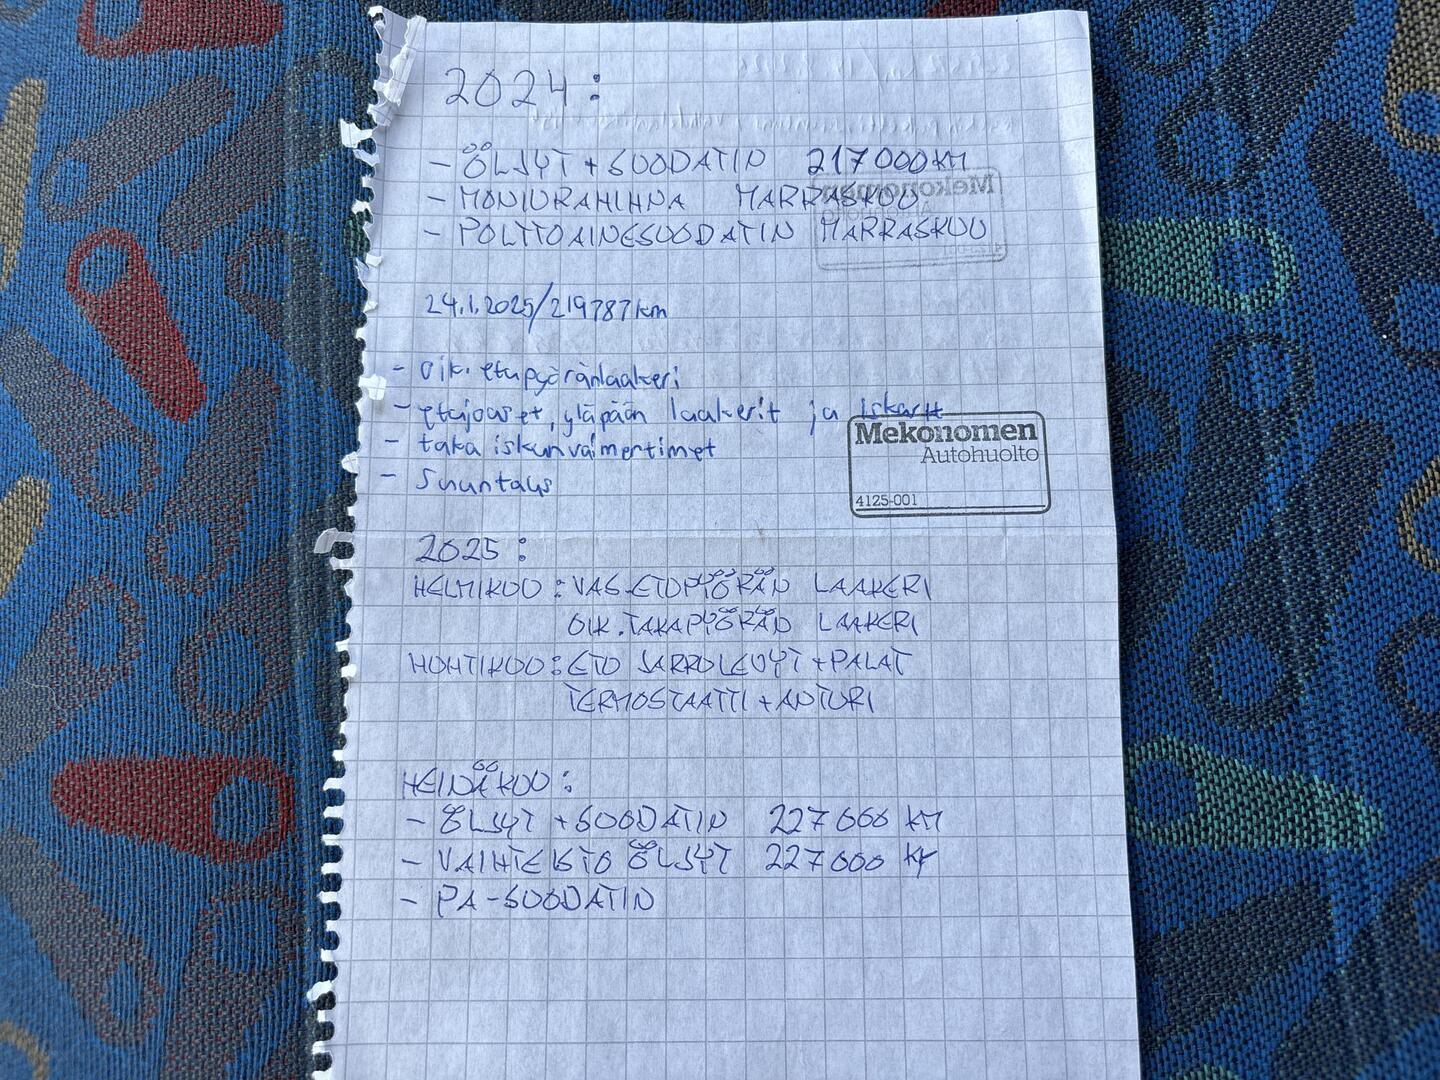 2024:
- ÖLJYT + SUODATIN 217000KM
- MONIURAHIHNA MARRASKUU
- POLTTOAINESUODATIN MARRASKUU
Mekonomen
24.1.2025/219787km
- oik. etupyöränlaakeri
- etujouset, yläpään laakerit ja iskarit
- taka iskunvaimentimet
- Suuntaus
Mekonomen
Autohuolto
4125-001
2025:
HELMIKUU: VAS.ETUPYÖRÄN LAAKERI
OIK.TAKAPYÖRÄN LAAKERI
HUHTIKUU: ETU JARRULEVYT + PALAT
TERMOSTAATTI + ANTURI
HEINÄKUU:
- ÖLJYT + SUODATIN 227000 KM
- VAIHTEISTO ÖLJYT 227000 KM
- PA-SUODATIN